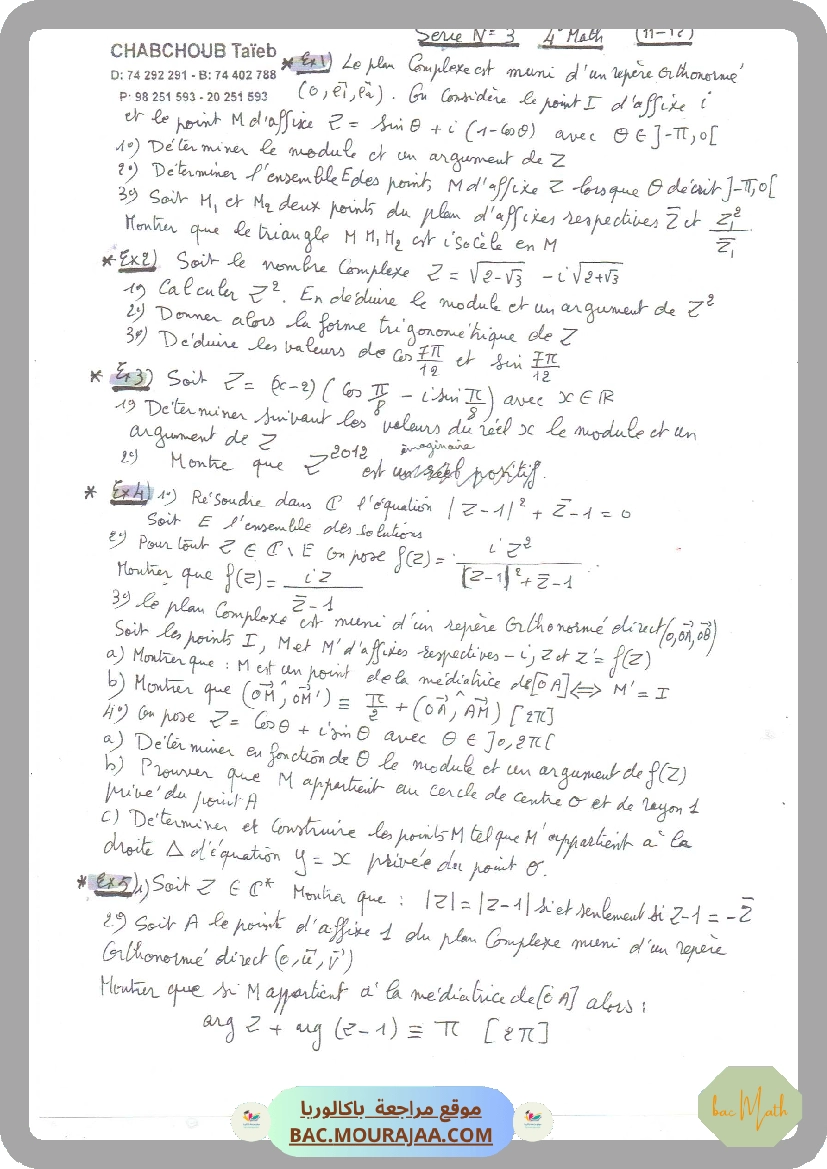 Serie N° 3 4° Math (11-12)
CHABCHOUB Taïeb
D: 74 292 291 - B: 74 402 788
P: 98 251 593 - 20 251 593
* Ex1) Le plan Complexe est muni d'un repère Orthonormé
(0, e₁, e₂). On Considère le point I d'affixe i
et le point M d'affixe Z = sin θ + i (1-Cos θ) avec θ ∈ ]-π, 0[
1°) Déterminer le module et un argument de Z
2°) Déterminer l'ensemble E des points M d'affixe Z lorsque θ décrit ]-π, 0[
3°) Soit M₁ et M₂ deux points du plan d'affixes respectives Z̄ et Z₁²/Z̄₁
Montrer que le triangle M M₁ M₂ est isocèle en M
* Ex2) Soit le nombre Complexe Z = √(2-√3) - i√(2+√3)
1°) Calculer Z². En déduire le module et un argument de Z²
2°) Donner alors la forme trigonométrique de Z
3°) Déduire les valeurs de Cos 7π/12 et sin 7π/12
* Ex3) Soit Z = (x-2) (Cos π/8 - i sin π/8) avec x ∈ ℝ
1°) Déterminer suivant les valeurs du réel x le module et un
argument de Z
2°) Montre que Z²⁰¹² est imaginaire
* Ex4) 1°) Résoudre dans ℂ l'équation |Z-1|² + Z̄-1 = 0
Soit E l'ensemble des solutions
2°) Pour tout Z ∈ ℂ\E on pose f(Z) = iZ²/(|Z-1|²+Z̄-1)
Montrer que f(Z) = iZ/(Z̄-1)
3°) le plan Complexe est muni d'un repère Orthonormé direct (0, OA, OB)
Soit les points I, M et M' d'affixes respectives -i, Z et Z' = f(Z)
a) Montrer que : M est un point de la médiatrice de [OA] ⟺ M' = I
b) Montrer que (OM ^ OM') ≡ π/2 + (OA ^ AM) [2π]
4°) On pose Z = Cos θ + i sin θ avec θ ∈ ]0, 2π[
a) Déterminer en fonction de θ le module et un argument de f(Z)
b) Prouver que M appartient au cercle de centre O et de rayon 1
privé du point A
c) Déterminer et Construire les points M tel que M' appartient à la
droite Δ d'équation y = x privée du point O.
* Ex5) 1) Soit Z ∈ ℂ* Montrer que : |Z| = |Z-1| si et seulement si Z-1 = -Z̄
2°) Soit A le point d'affixe 1 du plan Complexe muni d'un repère
Orthonormé direct (0, u, v)
Montrer que si M appartient à la médiatrice de [OA] alors :
arg Z + arg (Z-1) ≡ π [2π]
موقع مراجعة باكالوريا
BAC.MOURAJAA.COM
bac Math